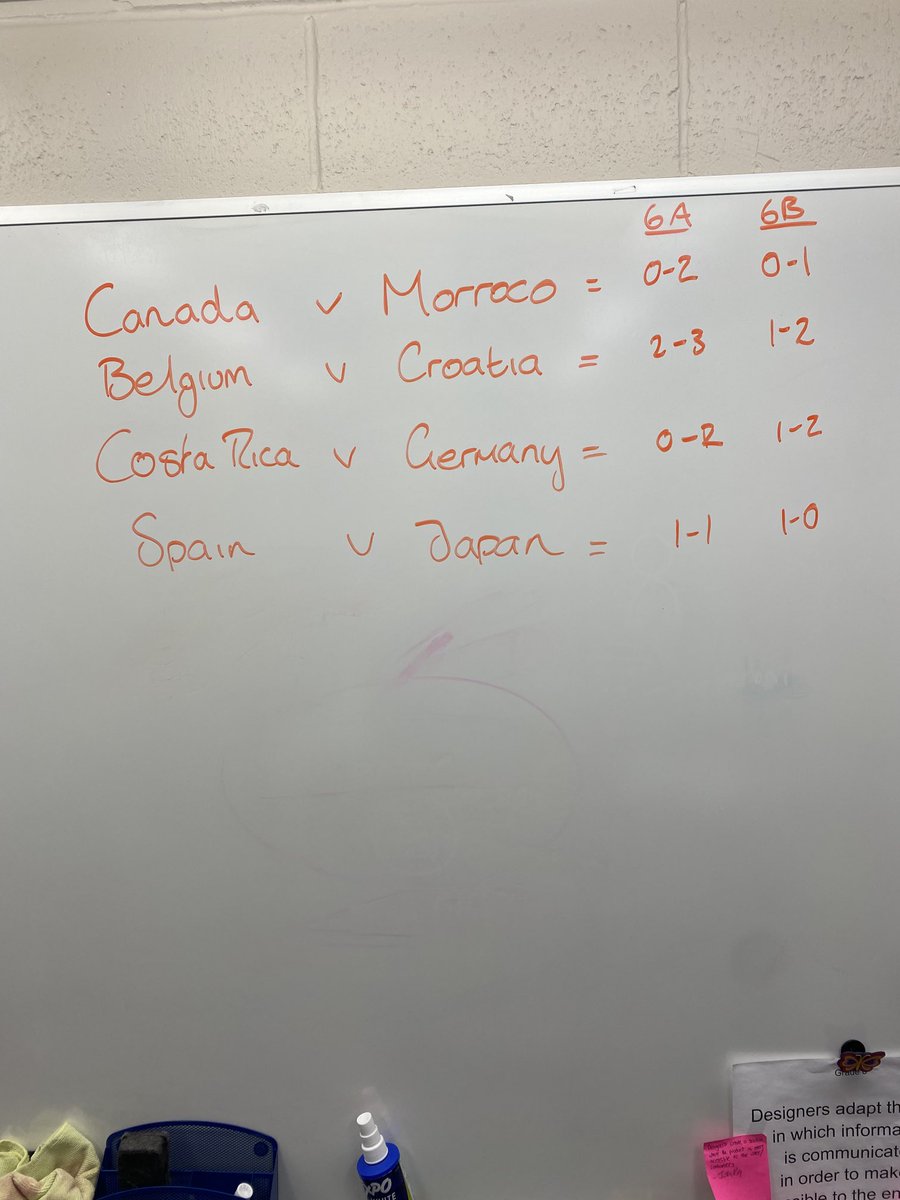 6A 6B
Canada v Morroco = 0-2 0-1
Belgium v Croatia = 2-3 1-2
Costa Rica v Germany = 0-2 1-2
Spain v Japan = 1-1 1-0
Grade
Designers adapt th
in which informa
is communicate
in order to make
sible to the en